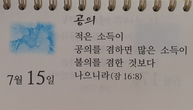 공의
적은 소득이
공의를 겸하면 많은 소득이
불의를 겸한 것보다
나으니라(잠 16:8)
7월 15일